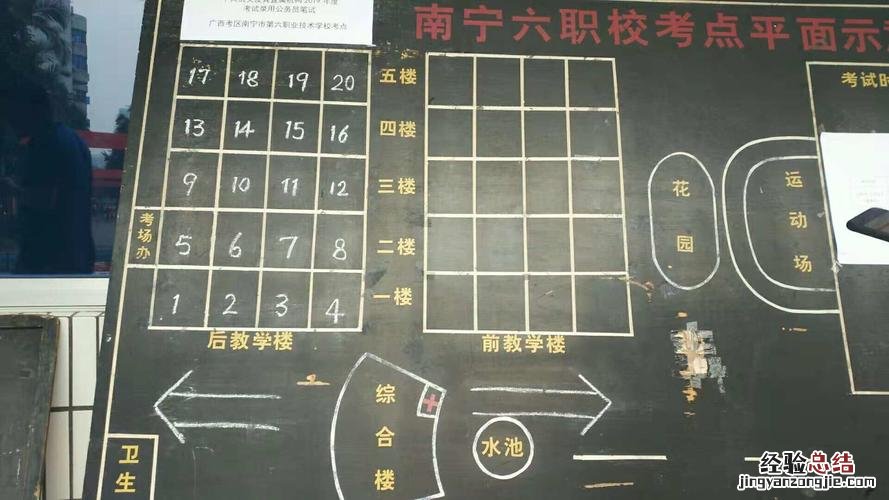 考试录用公务员笔试
广西考区南宁市第六职业技术学校考点
南宁六职校考点平面示
考试时
17 18 19 20 五楼
13 14 15 16 四楼
9 10 11 12 三楼
考场办 5 6 7 8 二楼
1 2 3 4 一楼
花园
运动场
后教学楼
前教学楼
综合楼
水池
卫生
经验总结
jingyanzongjie.com